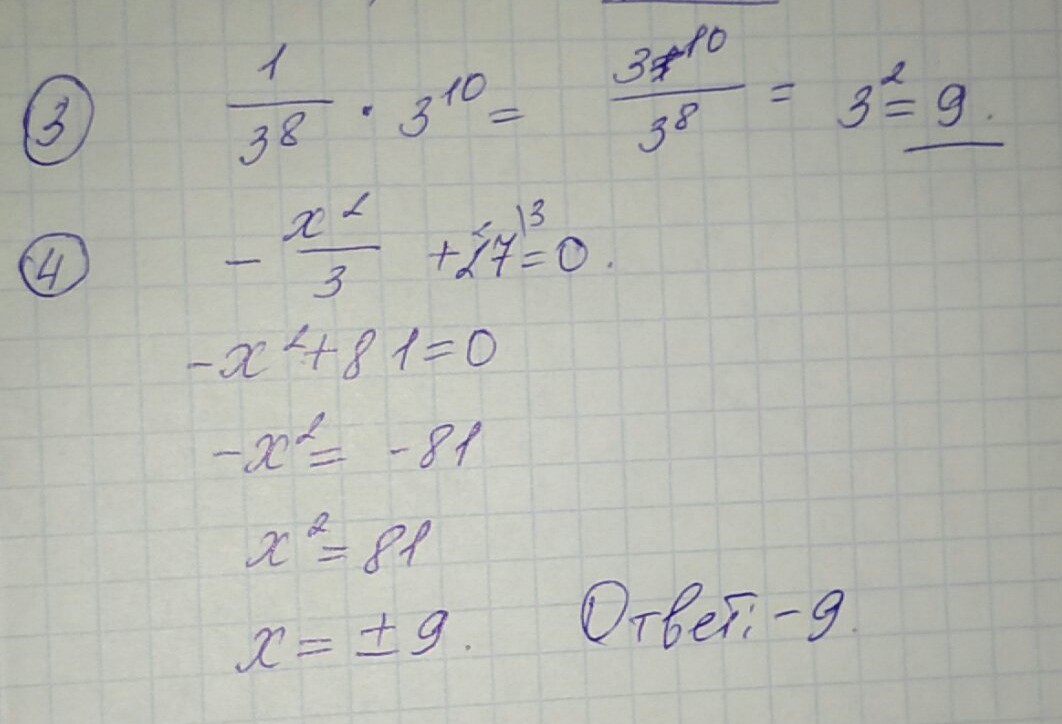 ③ 1/3⁸ · 3¹⁰ = 3¹⁰/3⁸ = 3² = 9.
④ - x²/3 + 27\³ = 0.
-x² + 81 = 0
-x² = -81
x² = 81
x = ± 9. Ответ: -9.